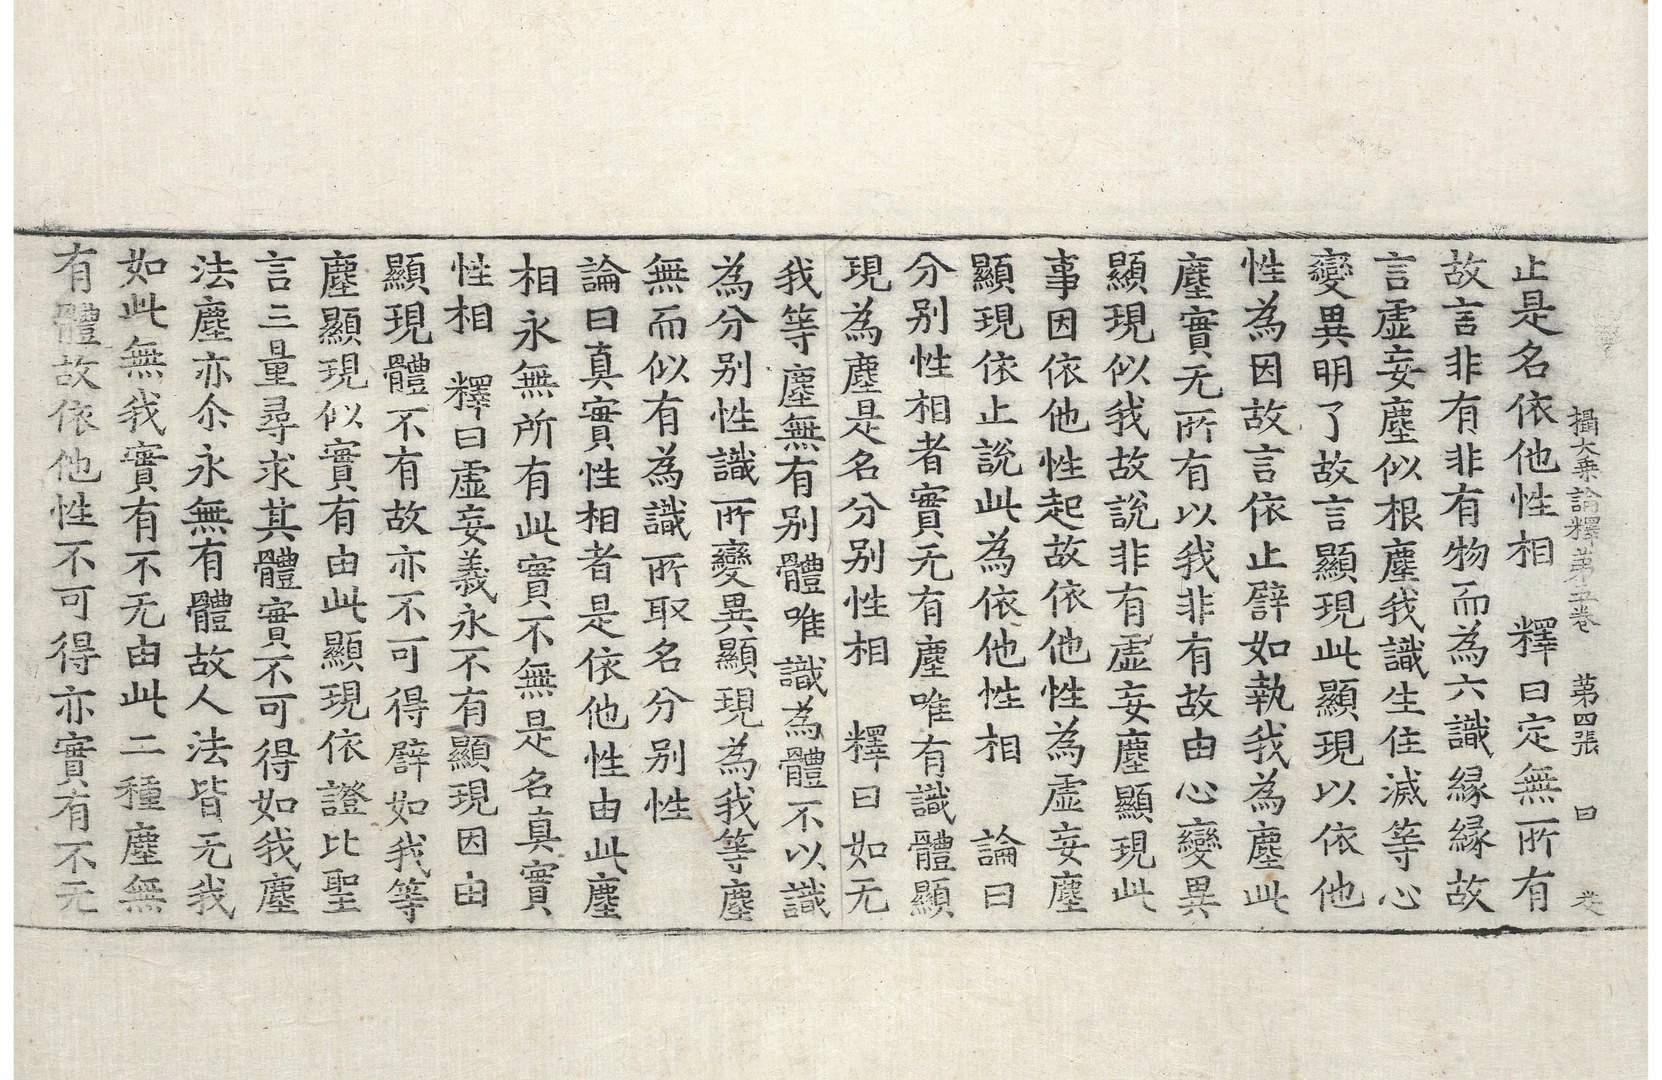 攝大乗論釋第五卷 第四張 曰 卷
止是名依他性相 釋曰定無所有
故言非有非有物而為六識縁縁故
言虚妄塵似根塵我識生住滅等心
變異明了故言顯現此顯現以依他
性為因故言依止譬如執我為塵此
塵實无所有以我非有故由心變異
顯現似我故說非有虚妄塵顯現此
事因依他性起故依他性為虚妄塵
顯現依止說此為依他性相 論曰
分别性相者實无有塵唯有識體顯
現為塵是名分别性相 釋曰如无
我等塵無有别體唯識為體不以識
為分别性識所變異顯現為我等塵
無而似有為識所取名分别性
論曰真實性相者是依他性由此塵
相永無所有此實不無是名真實
性相 釋曰虚妄義永不有顯現因由
顯現體不有故亦不可得譬如我等
塵顯現似實有由此顯現依證比聖
言三量尋求其體實不可得如我塵
法塵亦尒永無有體故人法皆无我
如此無我實有不无由此二種塵無
有體故依他性不可得亦實有不无